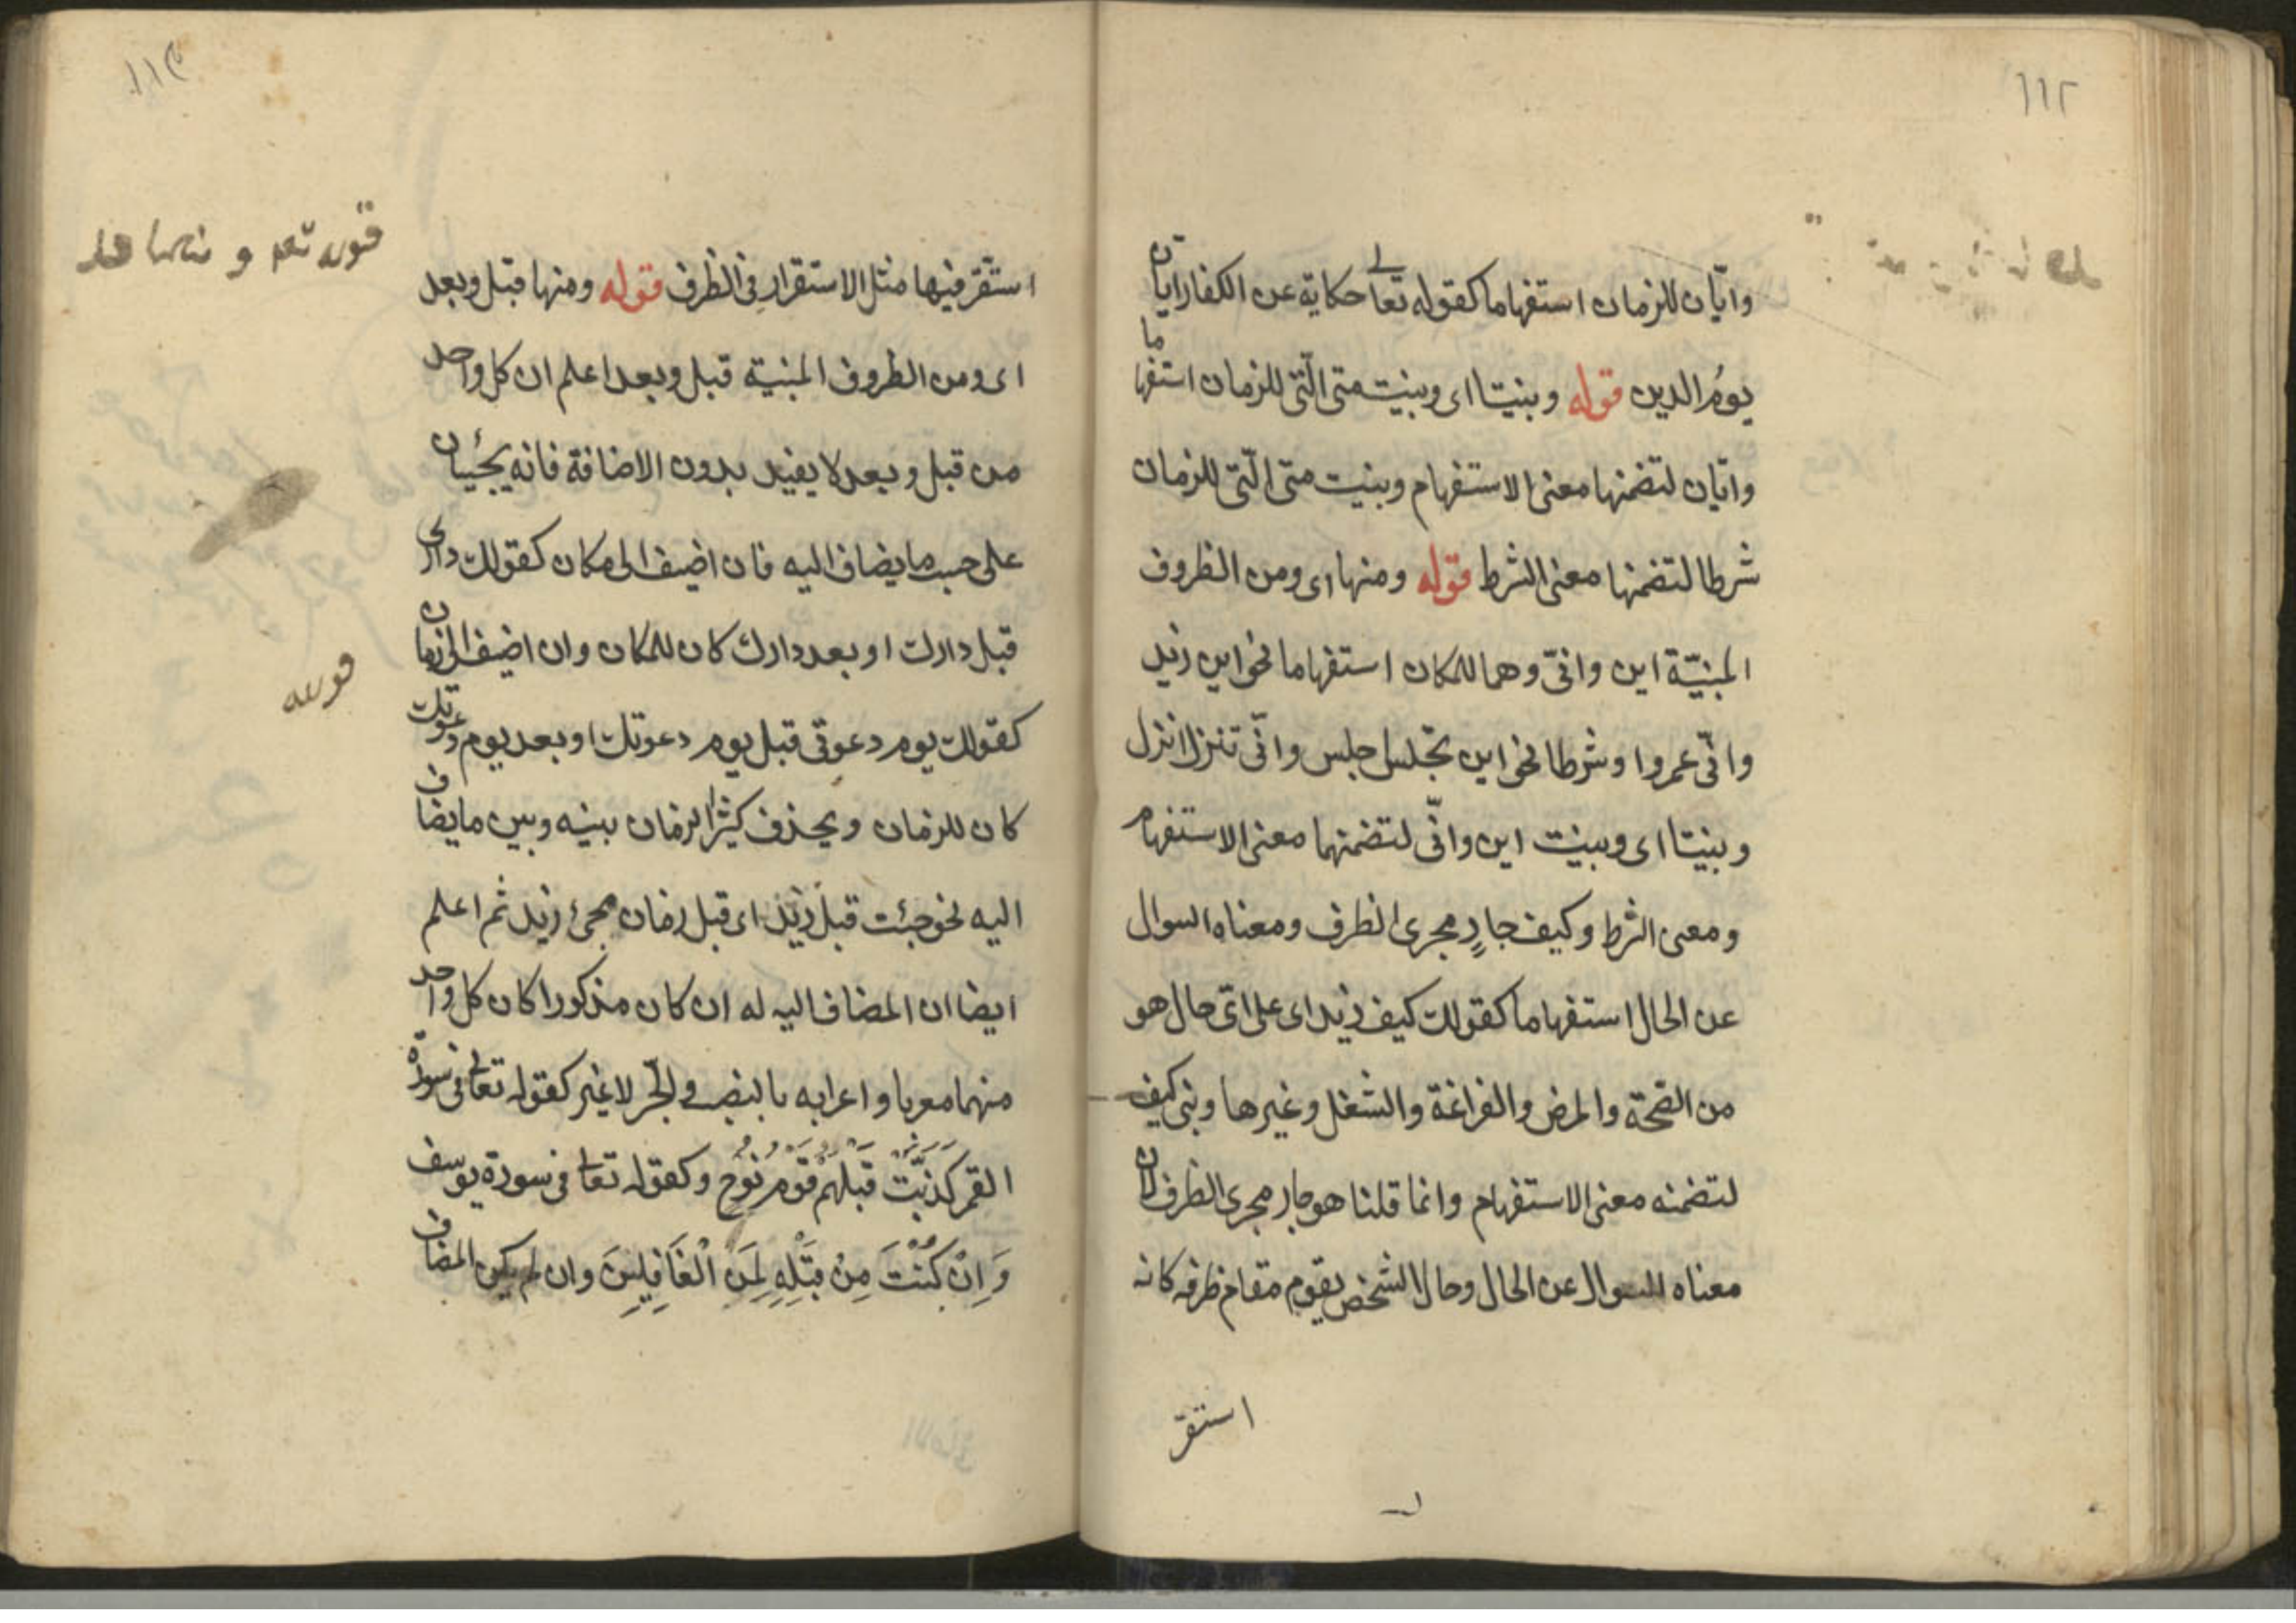 ١١٢
وايّان للزمان استفهاما كقوله تعالى حكاية عن الكفار ايان
يومُ الدين قوله وبنيتا اى وبنيت متى الّتى للزمان استفهاما
وايّان لتضمنها معنى الاستفهام وبنيت متى الّتى للزمان
شرطا لتضمنها معنى الشرط قوله ومنها اى ومن الظروف
المبنيّة اين وانّى وهما للمكان استفهاما نحو اين زيد
وانّى عمروا وشرطا نحو اين تجلس اجلس وانّى تنزل انزل
وبنيتا اى وبنيت اين وانّى لتضمنهما معنى الاستفهام
ومعنى الشرط وكيف جارٍ مجرى الظرف ومعناه السوال
عن الحال استفهاما كقولك كيف زيد اى على اىّ حال هو
من الصّحة والمرض والفراغة والشغل وغيرها وبنى كيف
لتضمنه معنى الاستفهام وانما قلنا هو جار مجرى الظرف لان
معناه السوال عن الحال وحال الشخص يقوم مقام ظرفه كانه
استقرّ
١١٣
استقرّ فيها مثل الاستقرار فى الظرف قوله ومنها قبل وبعد
اى ومن الظروف المبنية قبل وبعد اعلم ان كل واحد
من قبل وبعد لا يفيد بدون الاضافة فانه يجيئان
على حسب ما يضاف اليه فان اضيف الى مكان كقولك دارى
قبل دارك او بعد دارك كان للمكان وان اضيف الى زمان
كقولك يوم دعوتى قبل يوم دعوتك او بعد يوم دعوتك
كان للزمان ويحذف كثيرا الزمان بينه وبين ما يضاف
اليه نحو جئت قبل زيد اى قبل زمان مجئ زيد ثم اعلم
ايضا ان المضاف اليه له ان كان مذكورا كان كل واحد
منهما معربا واعرابه بالنصب والجرّ لا غير كقوله تعالى فى سورة
القمر كَذَّبَتْ قَبْلَهُمْ قَوْمُ نُوْحٍ وكقوله تعالى فى سورة يوسف
وَاِنْ كُنْتَ مِنْ قَبْلِهِ لَمِنَ الْغَافِلِينَ وان لم يكن المضاف
قوله